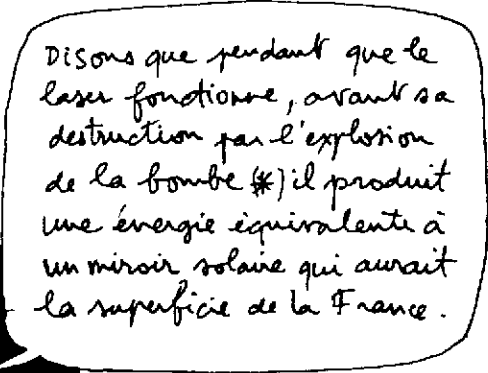 Disons que pendant que le
laser fonctionne, avant sa
destruction par l'explosion
de la bombe (*) il produit
une énergie équivalente à
un miroir solaire qui aurait
la superficie de la France.